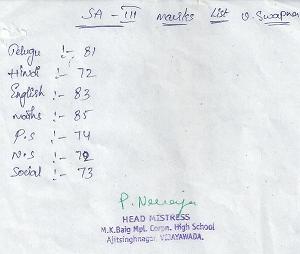 SA - III marks List V. Swapna
Telugu :- 81
Hindi :- 72
English :- 83
maths :- 85
P.S :- 74
N.S :- 72
Social :- 73
P. Neeraja
HEAD MISTRESS
M.K.Baig Mpl. Corpn. High School
Ajitsinghnagar, VIJAYAWADA.